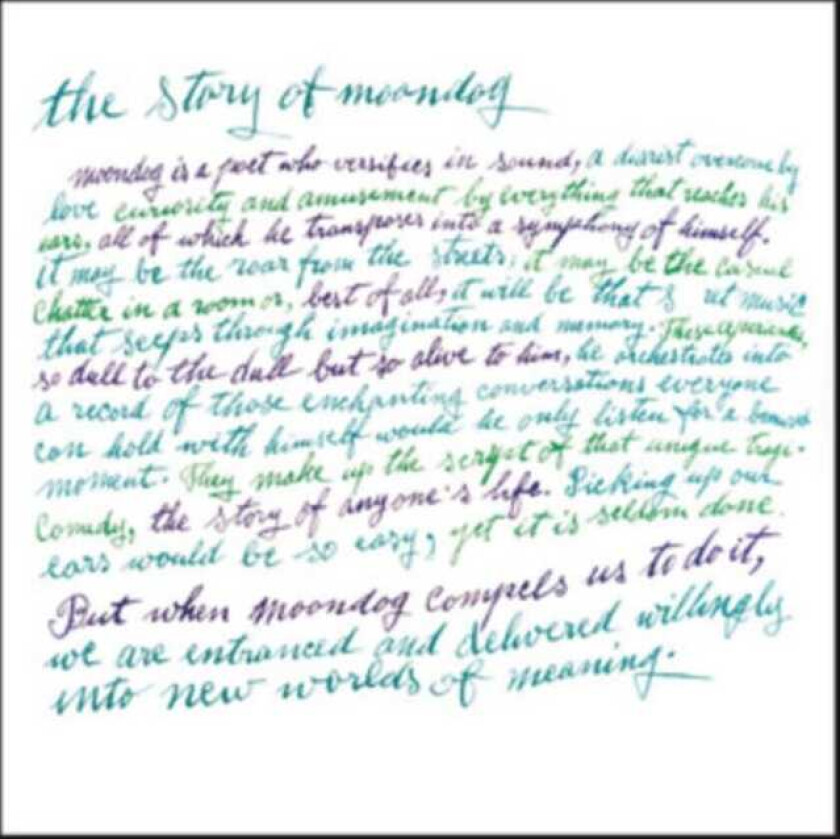 the story of moondog
moondog is a poet who versifies in sound, a diarist overcome by
love curiosity and amusement by everything that reaches his
ears, all of which he transposes into a symphony of himself.
it may be the roar from the streets; it may be the casual
chatter in a room or, best of all, it will be that s ret music
that seeps through imagination and memory. These
so dull to the dull but so alive to him, he orchestrates into
a record of those enchanting conversations everyone
can hold with himself would he only listen for a
moment. They make up the script of that unique tragi-
comedy, the story of anyone's life. Picking up our
ears would be so easy, yet it is seldom done.
But when moondog compels us to do it,
we are entranced and delivered willingly
into new worlds of meaning.